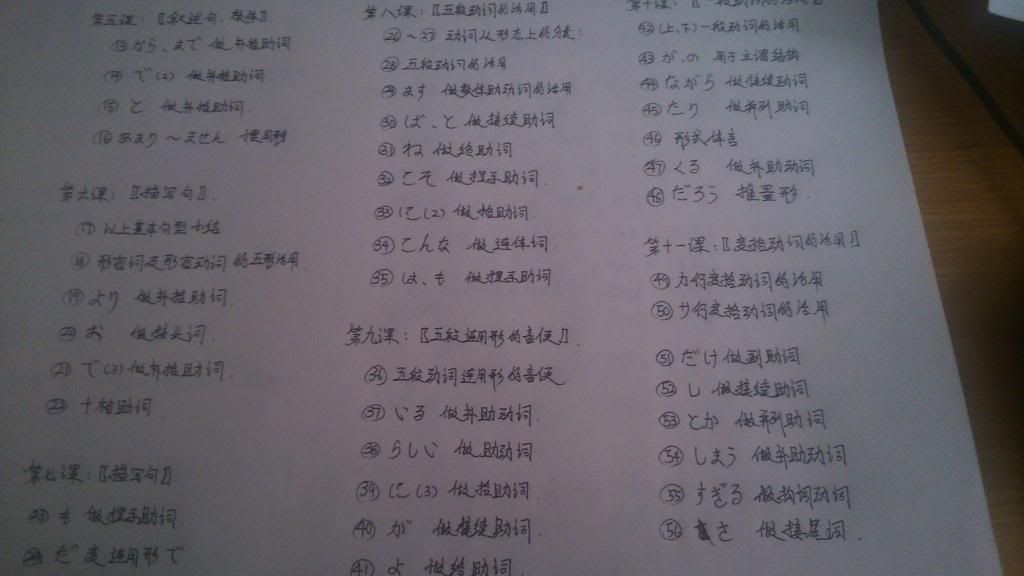 第五课：〖叙述句，敬体〗
⑬ から、まで 做补格助词
⑭ で（2） 做补格助词
⑮ と 做补格助词
⑯ あまり～ません 惯用形
第六课：〖描写句〗
⑰ 以上基本句型小结
⑱ 形容词及形容动词的五形活用
⑲ より 做补格助词
⑳ お 做接头词
㉑ で（3）做补格助词
㉒ 十格助词
第七课：〖描写句〗
㉓ も 做提示助词
㉔ だ 连用形 で
第八课：〖五段动词的活用〗
㉖～㉗ 动词从形态上的分类：
㉘ 五段动词的活用
㉙ ます 做敬体助动词的活用
㉚ ば、と 做接续助词
㉛ ね 做终助词
㉜ こそ 做提示助词
㉝ に（2）做格助词
㉞ こんな 做连体词
㉟ は、も 做提示助词
第九课：〖五段连用形的音便〗
㊱ 五段动词连用形的音便
㊲ いる 做补助动词
㊳ らしい 做助动词
㊴ に（3）做格助词
㊵ が 做接续助词
㊶ よ 做终助词
第十课：〖一段动词的活用〗
㊷ (上、下)一段动词的活用
㊸ が、の 用于主谓结构
㊹ ながら 做接续助词
㊺ たり 做并列助词
㊻ 形式体言
㊼ くる 做补助动词
㊽ だろう 推量形
第十一课：〖变格动词的活用〗
㊾ カ行变格动词的活用
㊿ サ行变格动词的活用
51 だけ 做副助词
52 し 做接续助词
53 とか 做并列助词
54 しまう 做补助动词
55 すぎる 做构词动词
56 さ 做接尾词